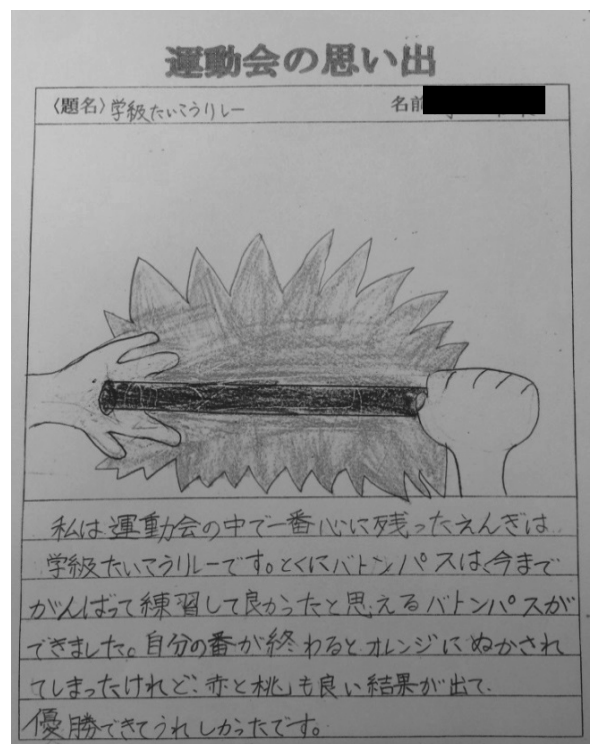 運動会の思い出
〈題名〉学級たいこうリレー
名前
私は運動会の中で一番心に残ったえんぎは
学級たいこうリレーです。とくにバトンパスは、今まで
がんばって練習して良かったと思えるバトンパスが
できました。自分の番が終わるとオレンジにぬかされ
てしまったけれど、赤と桃も良い結果が出て、
優勝できてうれしかったです。